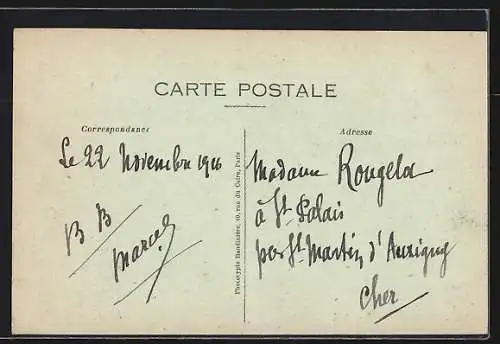 CARTE POSTALE
Correspondance
Le 22 Novembre 1916
B B
Marcel
Phototypie Baudinière, 40, rue du Caire, Paris
Adresse
Madame Rougela
à St Palais
par St Martin d'Auxigny
Cher